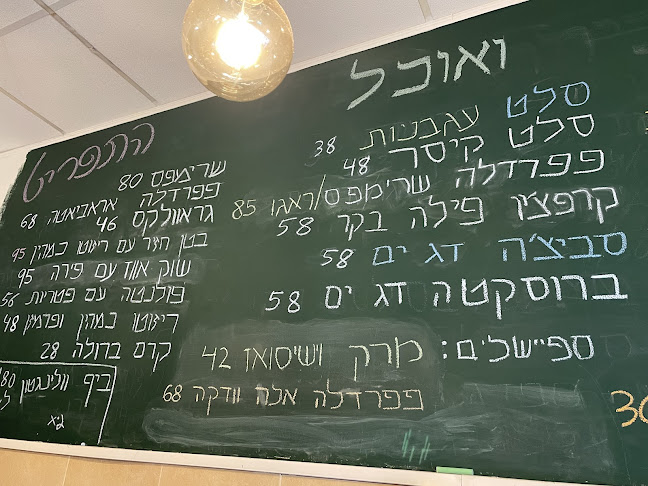 ואוכל
סלט עגבניות 38
סלט קיסר 48
פפרדלה שרימפס/ראגו 85
קרפצ'יו פילה בקר 58
סביצ'ה דג ים 58
ברוסקטה דג ים 58
ספיישלים:
מרק וישיסואז 42
פפרדלה אלה וודקה 68
התפריט
שרימפס 80
פפרדלה אראביאטה 68
גראוולקס 46
בטן חזיר עם ריזוטו כמהין 95
שוק אווז עם פירה 95
פולנטה עם פטריות 56
ריזוטו כמהין ופרמזן 48
קרם ברולה 28
ביף וולינגטון